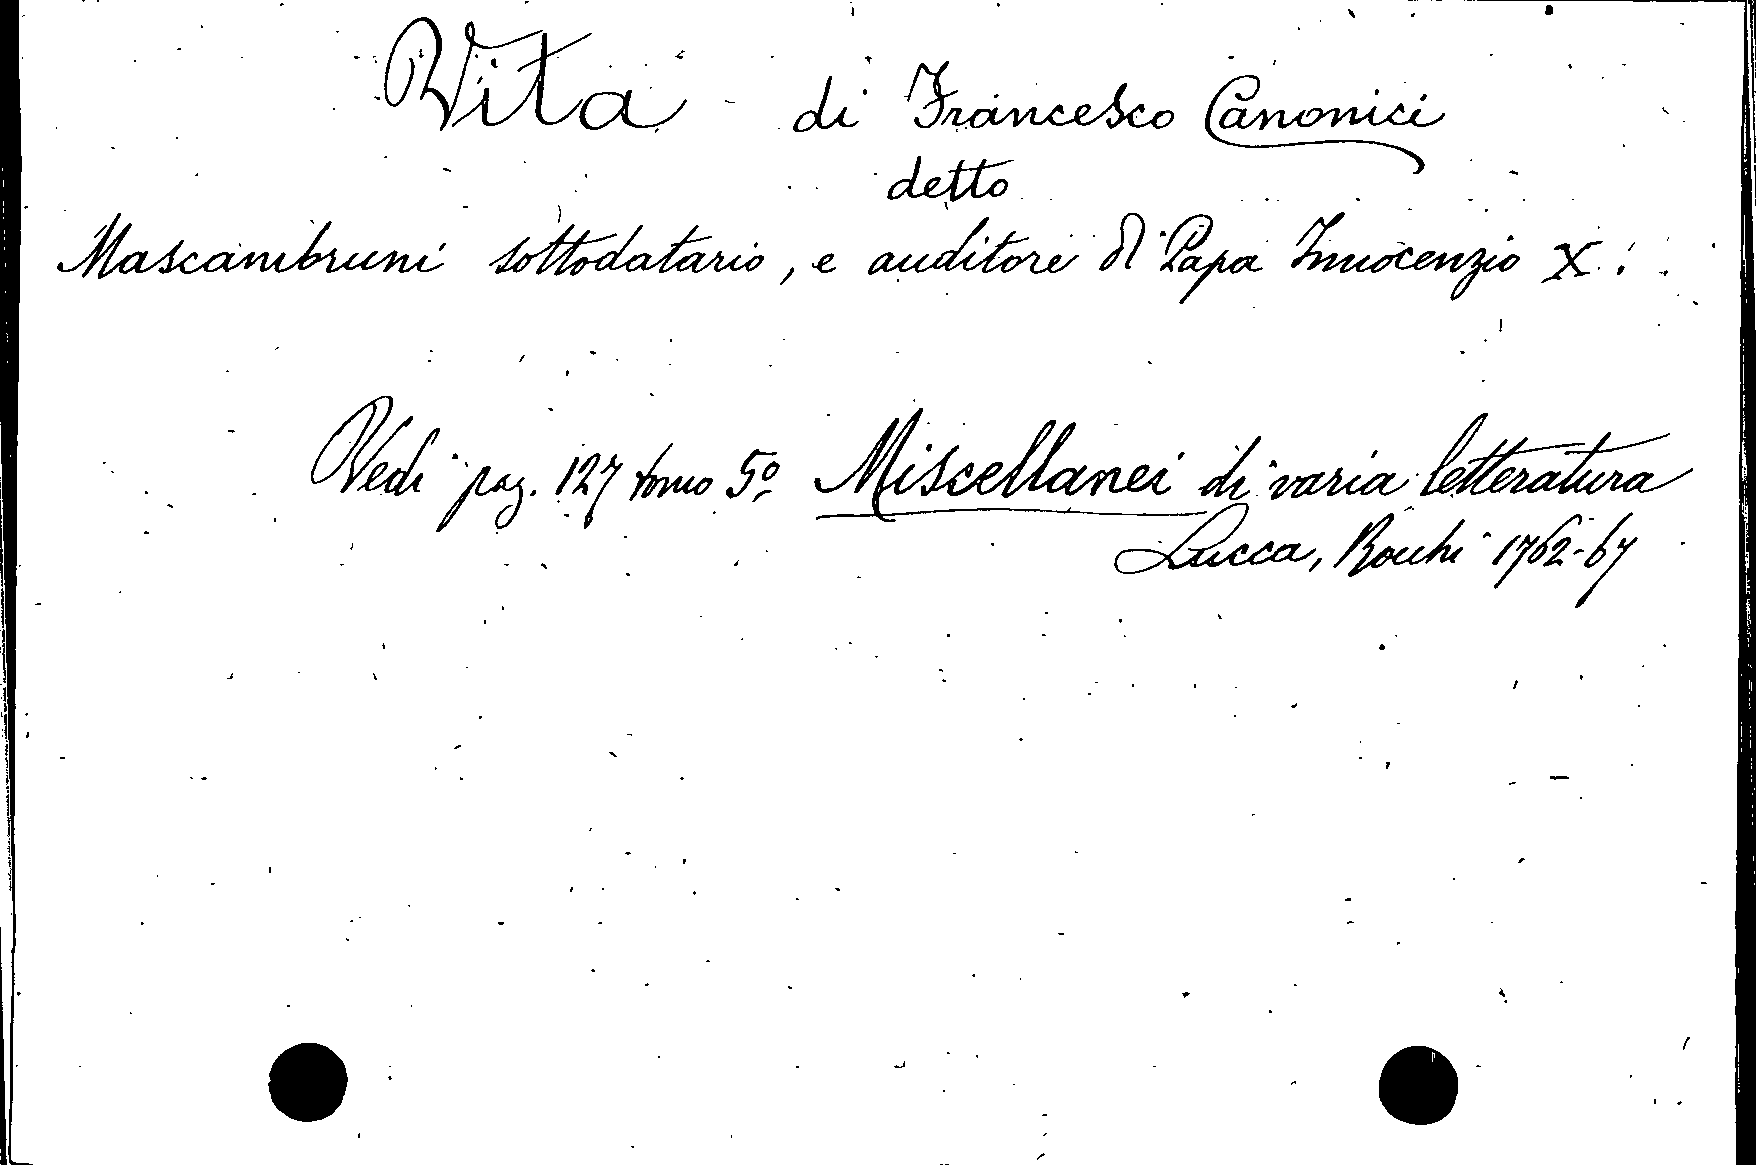 Vita di Francesco Canonici
detto
Mascambruni sottodatario, e auditore di Papa Innocenzio X.
Vedi pag. 127 tomo 5º Miscellanei di varia letteratura
Lucca, Rocchi 1762-67